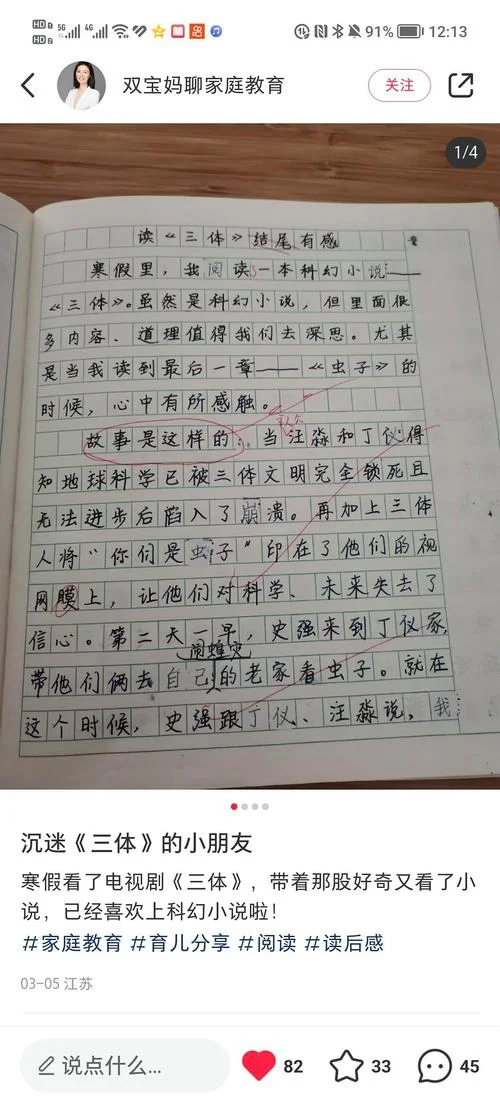 HD 1 5G 4G 91% 12:13
HD 2
双宝妈聊家庭教育 关注
1/4
读《三体》结尾有感
寒假里，我阅读一本科幻小说——
《三体》。虽然是科幻小说，但里面很
多内容、道理值得我们去深思。尤其
是当我读到最后一章——《虫子》的
时候，心中有所感触。
故事是这样的：当汪淼和丁仪得
知地球科学已被三体文明完全锁死且
无法进步后陷入了崩溃。再加上三体
人将“你们是虫子”印在了他们的视
网膜上，让他们对科学、未来失去了
信心。第二天一早，史强来到丁仪家，
闹蝗灾
带他们俩去自己的老家看虫子。就在
这个时候，史强跟丁仪、汪淼说，我
沉迷《三体》的小朋友
寒假看了电视剧《三体》，带着那股好奇又看了小
说，已经喜欢上科幻小说啦！
#家庭教育 #育儿分享 #阅读 #读后感
03-05 江苏
说点什么... 82 33 45